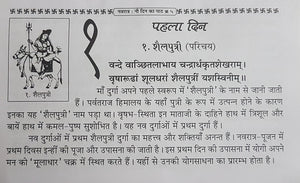 नवरात्र : नौ दिन का पाठ ५ ५
१
पहला दिन
१. शैलपुत्री (परिचय)
वन्दे वाञ्छितलाभाय चन्द्रार्धकृतशेखराम्।
वृषारूढां शूलधरां शैलपुत्रीं यशस्विनीम्॥
१. शैलपुत्री
माँ दुर्गा अपने पहले स्वरूप में 'शैलपुत्री' के नाम से जानी जाती
हैं। पर्वतराज हिमालय के यहाँ पुत्री के रूप में उत्पन्न होने के कारण
इनका यह 'शैलपुत्री' नाम पड़ा था। वृषभ-स्थिता इन माताजी के दाहिने हाथ में त्रिशूल और
बायें हाथ में कमल-पुष्प सुशोभित है। यह नव दुर्गाओं में प्रथम दुर्गा हैं।
नव दुर्गाओं में प्रथम शैलपुत्री दुर्गा का महत्त्व और शक्तियाँ अनन्त हैं। नवरात्र-पूजन में
प्रथम दिवस इन्हीं की पूजा और उपासना की जाती है। इस प्रथम दिन की उपासना में योगी अपने
मन को 'मूलाधार' चक्र में स्थित करते हैं। यहीं से उनकी योगसाधना का प्रारम्भ होता है।